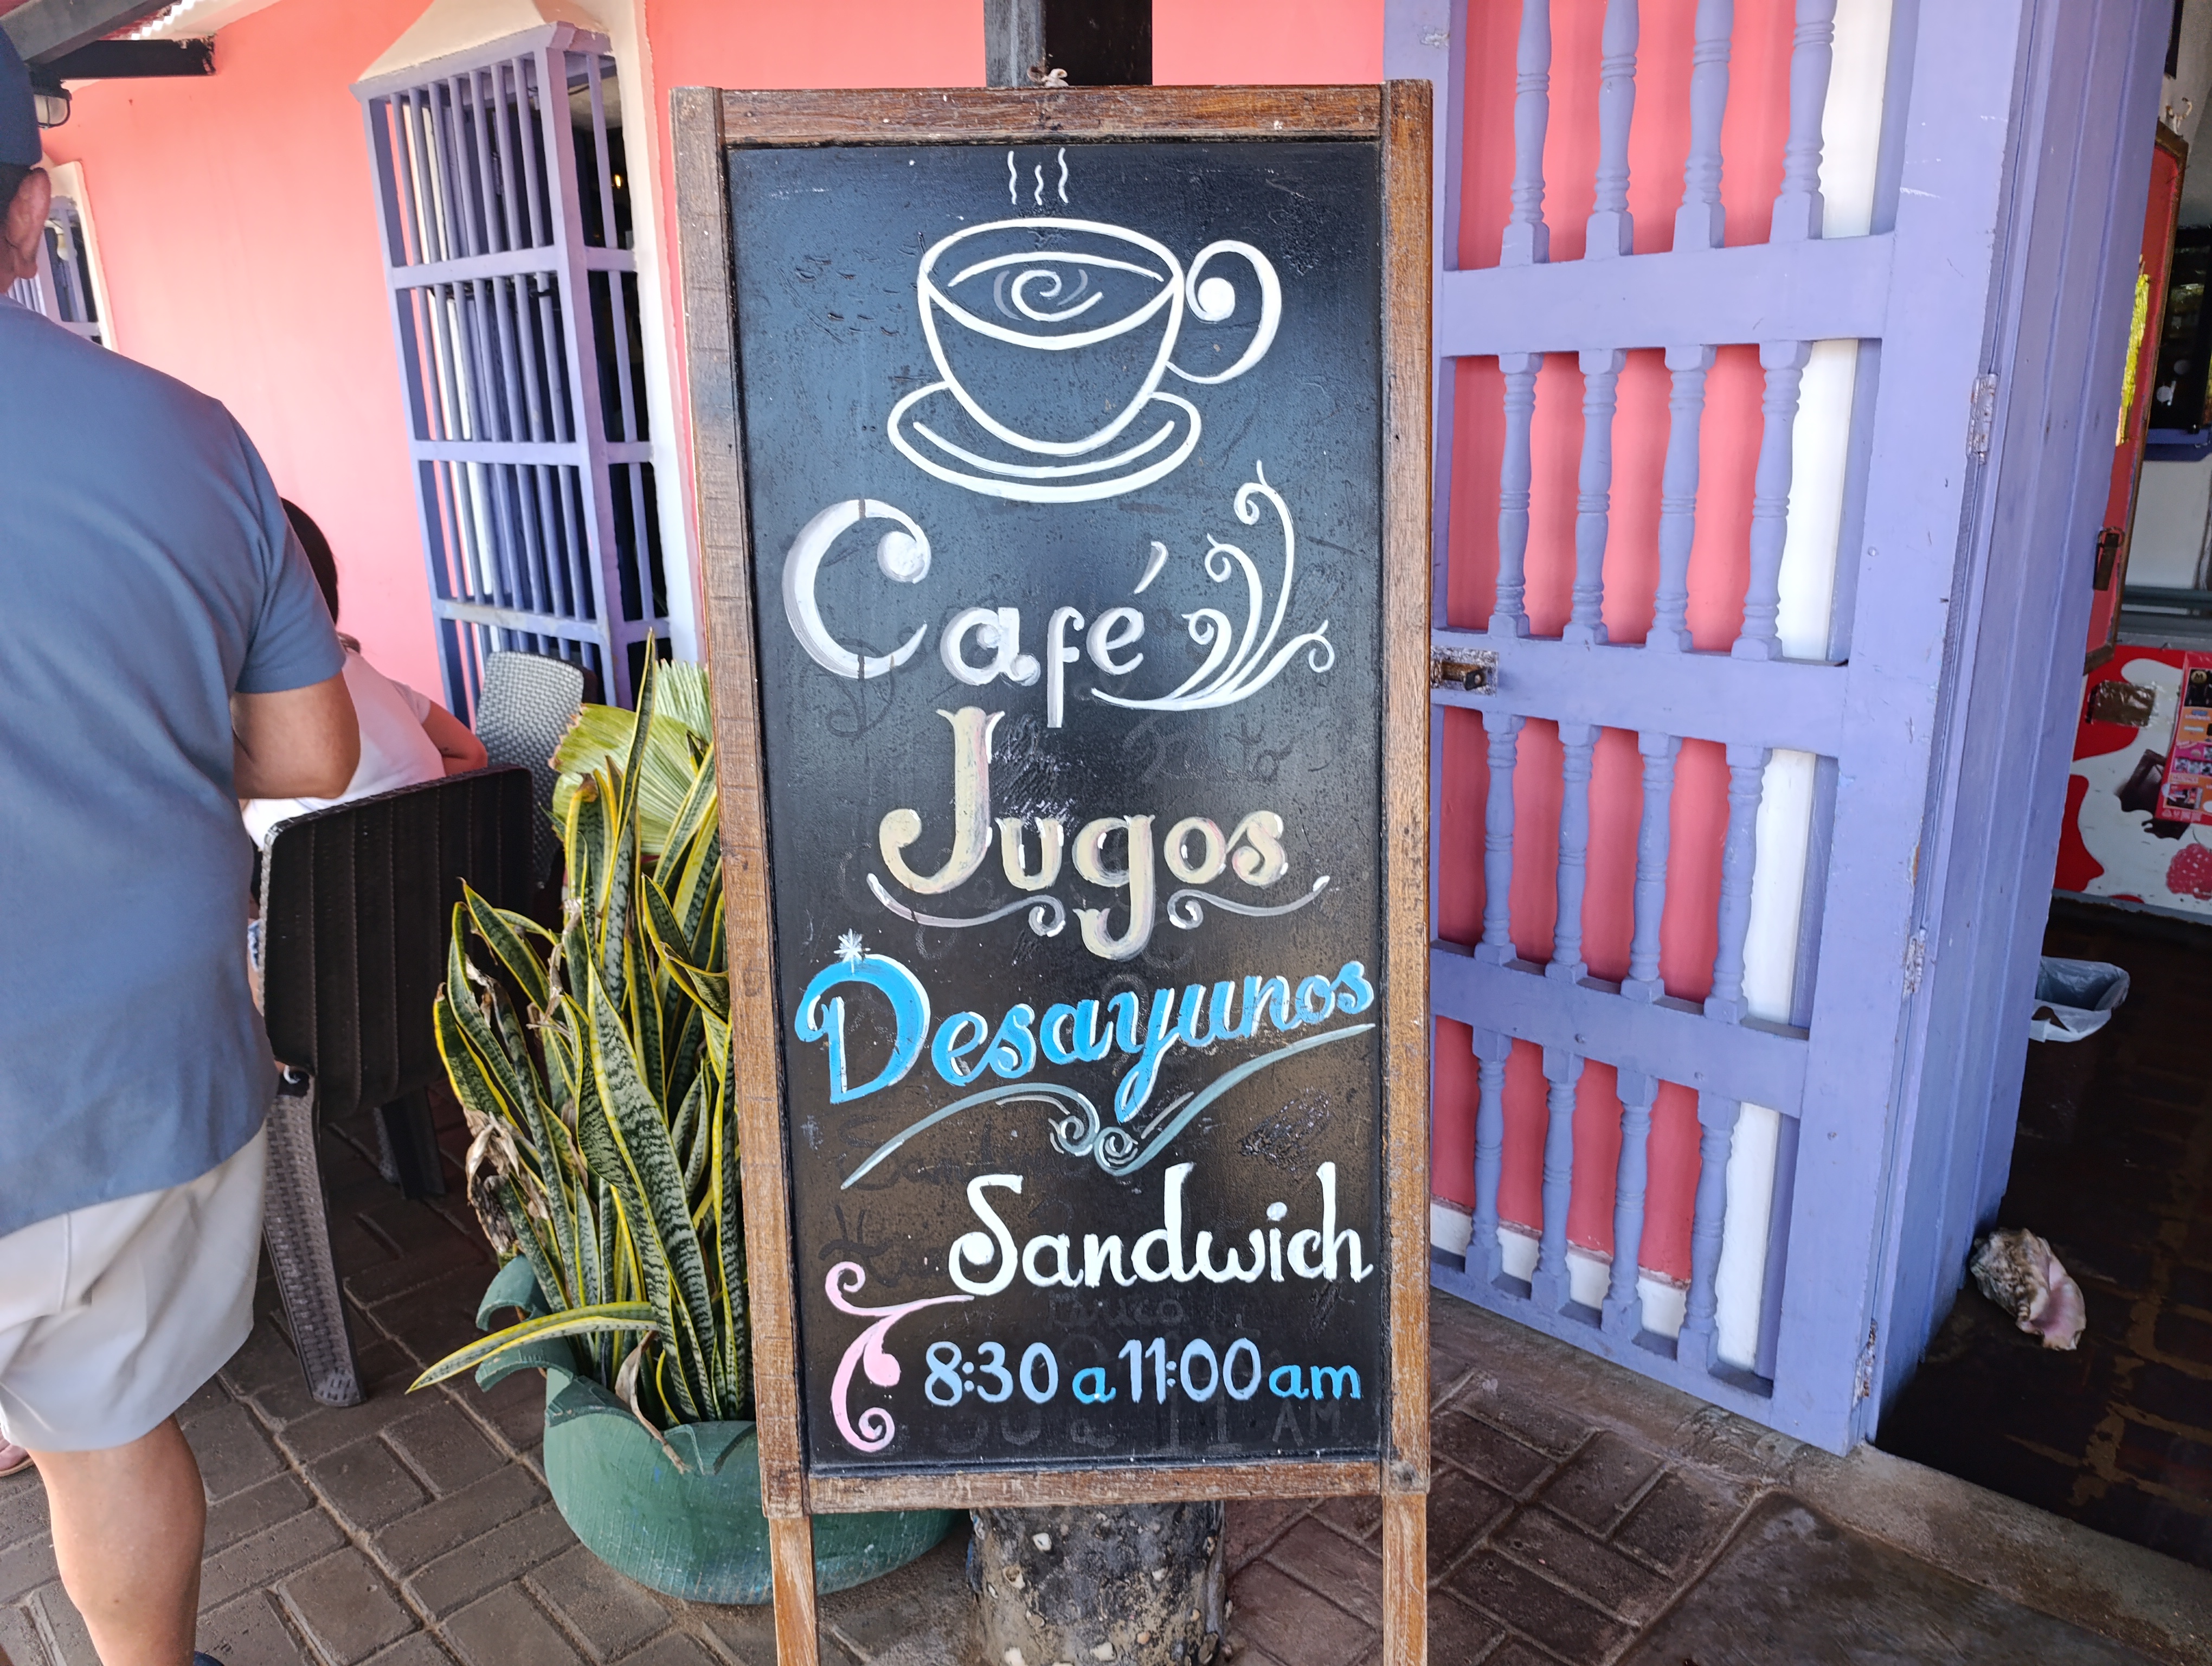 Café
Jugos
Desayunos
Sandwich
8:30 a 11:00 am